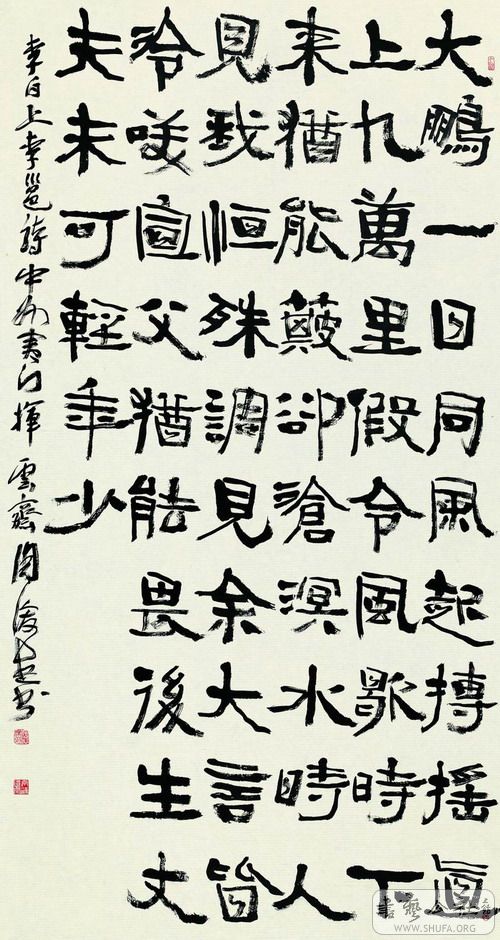 大鵬一日同風起摶搖直
上九萬里假令風歇時下
来猶能簸卻滄溟水時人
見我恒殊調見余大言皆
冷咲宣父猶能畏後生丈
夫未可輕年少
李白上李邕詩中州夷门揮雲齋周俊杰书
書藝公社
WWW.SHUFA.ORG